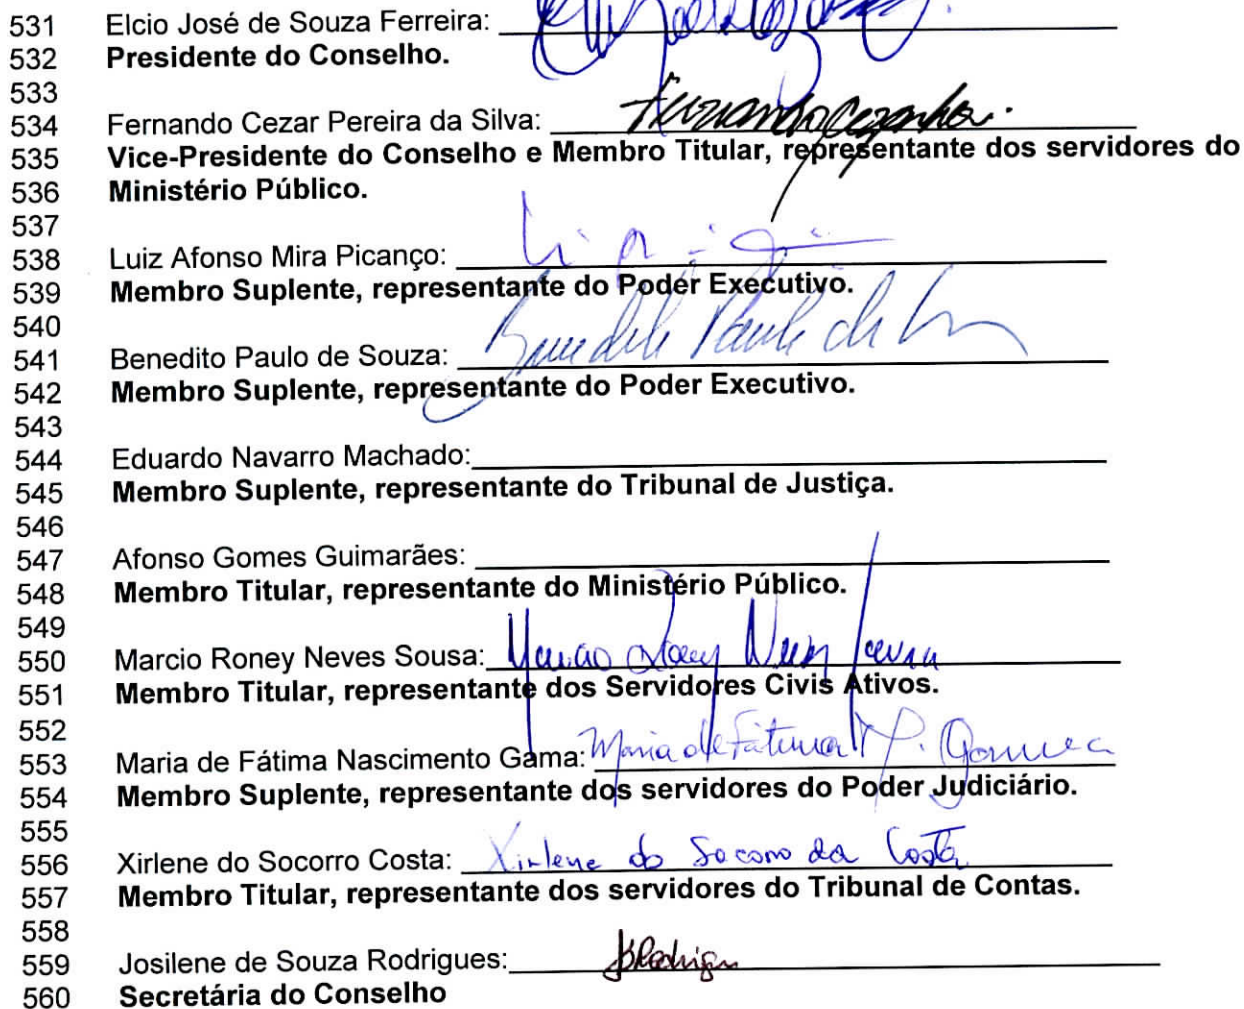 531 Elcio José de Souza Ferreira:
532 Presidente do Conselho.
533
534 Fernando Cezar Pereira da Silva: Fernando Cezar
535 Vice-Presidente do Conselho e Membro Titular, representante dos servidores do
536 Ministério Público.
537
538 Luiz Afonso Mira Picanço:
539 Membro Suplente, representante do Poder Executivo.
540
541 Benedito Paulo de Souza: Benedito Paulo de
542 Membro Suplente, representante do Poder Executivo.
543
544 Eduardo Navarro Machado:
545 Membro Suplente, representante do Tribunal de Justiça.
546
547 Afonso Gomes Guimarães:
548 Membro Titular, representante do Ministério Público.
549
550 Marcio Roney Neves Sousa: Marcio Roney Neves Sousa
551 Membro Titular, representante dos Servidores Civis Ativos.
552
553 Maria de Fátima Nascimento Gama: Maria de Fátima N. Gama
554 Membro Suplente, representante dos servidores do Poder Judiciário.
555
556 Xirlene do Socorro Costa: Xirlene do Socorro da Costa
557 Membro Titular, representante dos servidores do Tribunal de Contas.
558
559 Josilene de Souza Rodrigues:
560 Secretária do Conselho